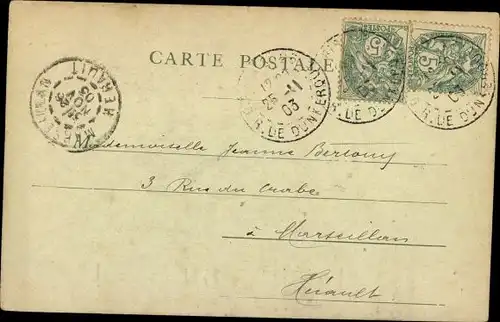 CARTE POSTALE
PARIS
12
26-11
03
R. DE DUNKERQUE
5
5
MARSEILLAN
NOV
03
HERAULT
Mademoiselle Jeanne Bertouy
3 Rue du Crabe
à Marseillan
Hérault